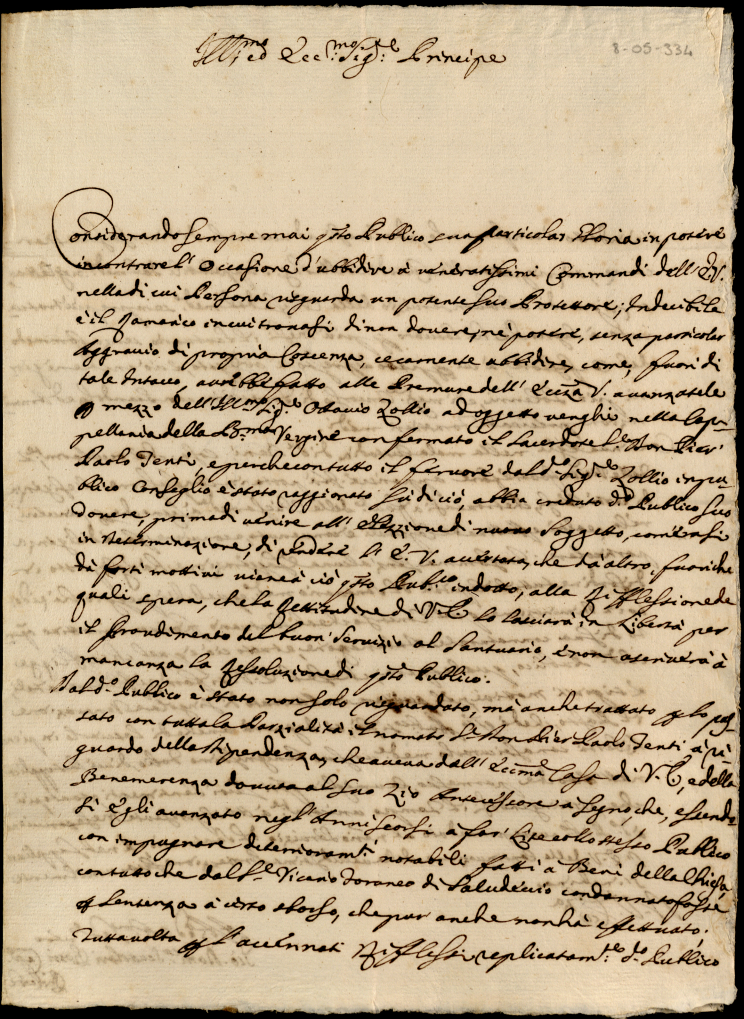 Ill.mo ed Ecc.mo Sig.re Principe
8-05-334
Considerando sempre mai q.sto Publico sua particolar Gloria in potere
incontrare l' Occasione d'ubbidire à veneratissimi Commandi dell' E.V.
nella di cui Persona riguarda un potente suo Protettore; Indecibile
è il Ramarico in cui trovasi di non dovere, ne potere, senza particolar
Aggravio di propria Coscenza, cecamente ubbidire, come, fuori di
tale Intacco, avrebbe fatto alle Premure dell' Eccza V. avanzatele
p mezzo dell' Ill.mo Sig.re Ottavio Zollio ad oggetto venghi nella Cap-
pellania della B.ma Vergine confermato il Sacerdote S.r Don Pier'
Paolo Tenti, e perche con tutto il fervore dal d.o Sig.re Zollio in pu-
blico Conseglio è stato raggionato sù di ciò, abbia creduto d.o Publico suo
dovere, prima di venire all' Elezzione di nuovo Soggetto, com'è in si
in determinazione, di rendere l' E. V. accertata, che da altro, fuori che
da forti mottivi viene à ciò q.sto Pub.co indotto, alla Rifflessione de
quali spera, che la Rettitudine di V.E. lo lasciarà in Libertà per
il Provedimento del buon' Servizio al Santuario, e non ascriverà à
mancanza la Ressoluzione di q.sto Publico.
Dal d.o Publico è stato non solo riguardato, mà anche trattato p lo pas-
sato con tutta la Parzialità il nomato S.r Don Pier Paolo Tenti à ri-
guardo della dipendenza, che aveva dall' Eccma Casa di V.E., e della
Benemerenza dovuta al suo Zio Antecessore a Segno che, essendo-
si Egli avanzato negl' Anni scorsi à far' Lite collo stesso Publico
con impugnare deterioram.ti notabili fatti à Beni della Chiesa,
contutto che dal S.r Vicario Foraneo di Saludecio condannato fosse
p Sentenza à certo sborso, che pur anche non hà effettuato;
Tuttavolta p l' accennati Rifflessi replicatam.te d.o Publico